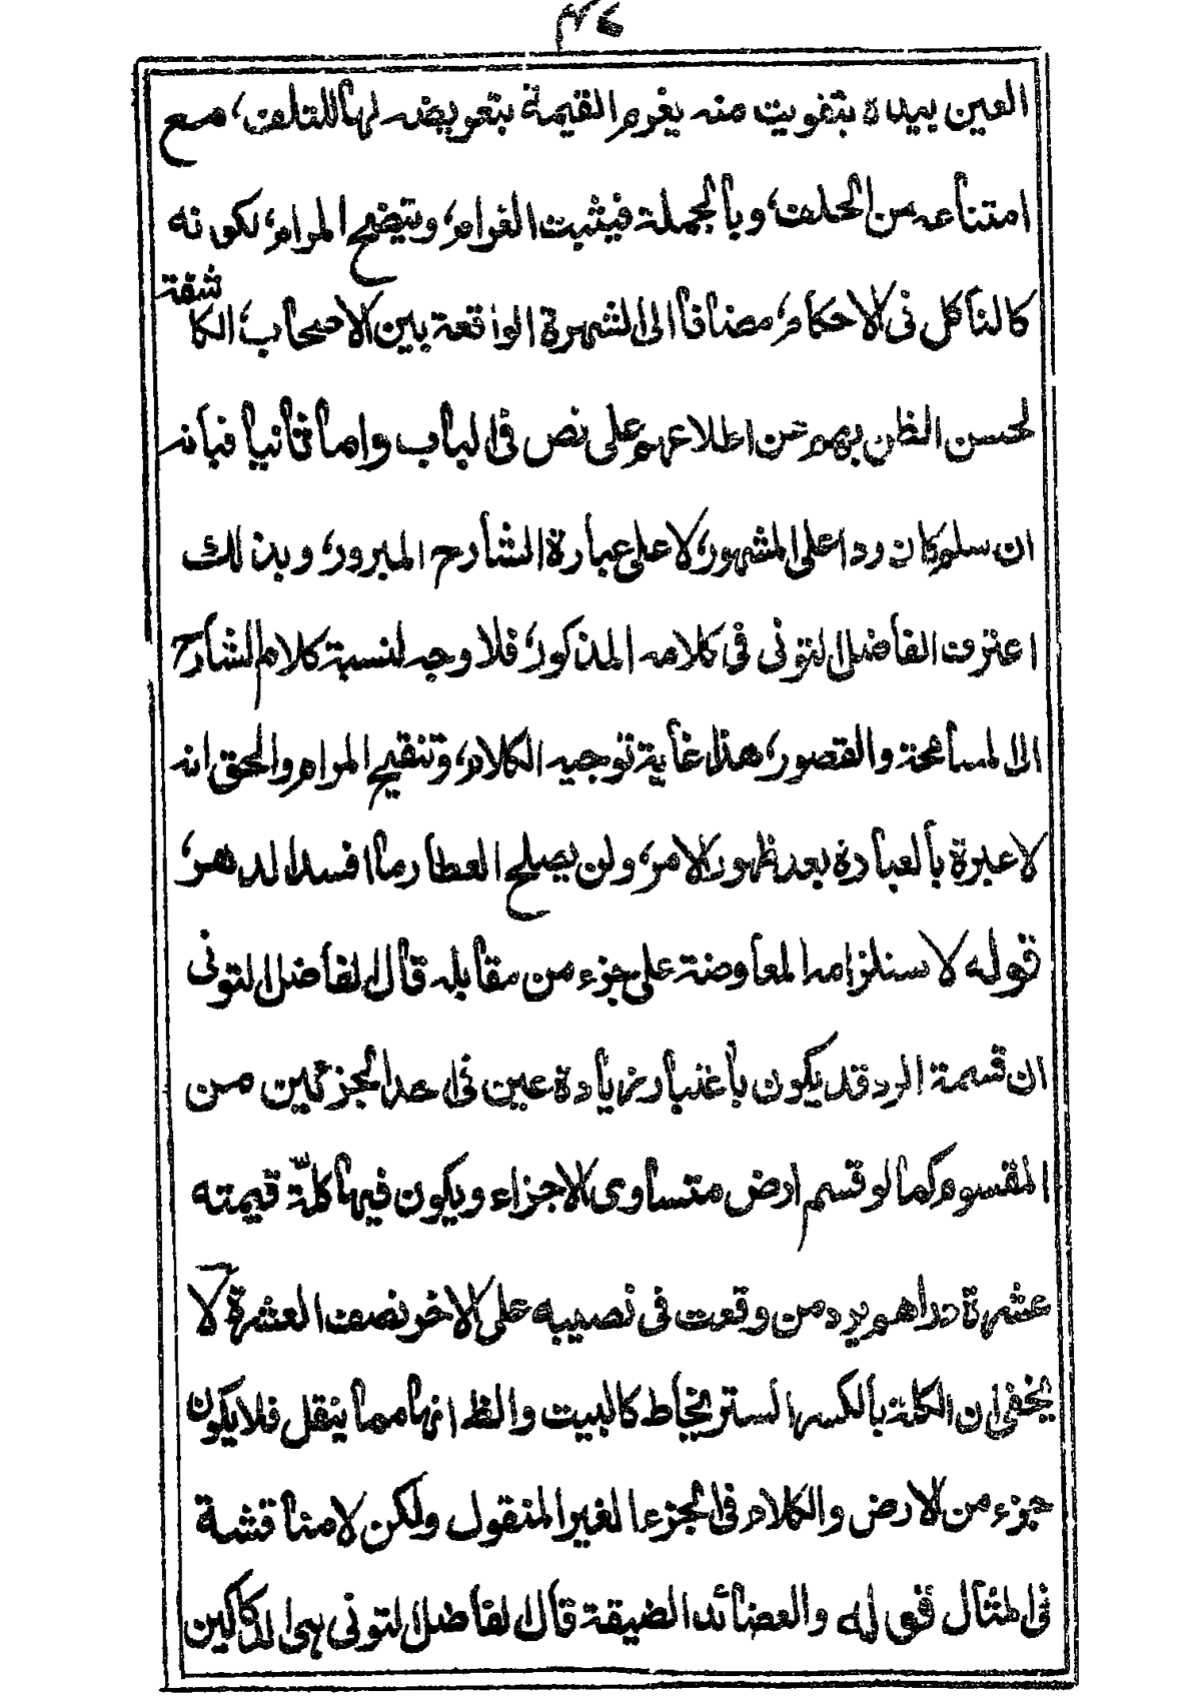 العين بيده بتفويت منه يغرم القيمة بتعويضه لها للتلف، مع
امتناعه من الحلف، وبالجملة فيثبت الغرام، ويتضح المرام، لكونه
كالناكل فى الاحكام، مضافا الى الشهرة الواقعة بين الاصحاب، الكاشفة
لحسن الظن بهم عن اطلاعهم على نص فى الباب واما ثانيا فبانه
ان سلم كان ردا على المشهور، لا على عبارة الشارح المبرور، وبذلك
اعترف الفاضل التونى فى كلامه المذكور، فلا وجه لنسبة كلام الشارح
الى المسامحة والقصور، هذا غاية توجيه الكلام، وتنقيح المرام والحق انه
لا عبرة بالعبادة بعد ظهور الامر، ولن يصلح العطار ما افسد الدهر،
قوله لاستلزامه المعاوضة على جزء من مقابله قال الفاضل التونى
ان قسمة الرد قد يكون باعتبار زيادة عين فى احد الجزئين من
المقسوم كما لو قسم ارض متساوى الاجزاء ويكون فيها كلّة قيمته
عشرة دراهم يرد من وقعت فى نصيبه على الاخر نصف العشرة لا
يخفى ان الكلة بالكسر الستر يخاط كالبيت والظ انها مما ينقل فلا يكون
جزء من الارض والكلام فى الجزء الغير المنقول ولكن لا مناقشة
فى المثال قوله والعضائد الضيقة قال الفاضل التونى هى الدكاكين